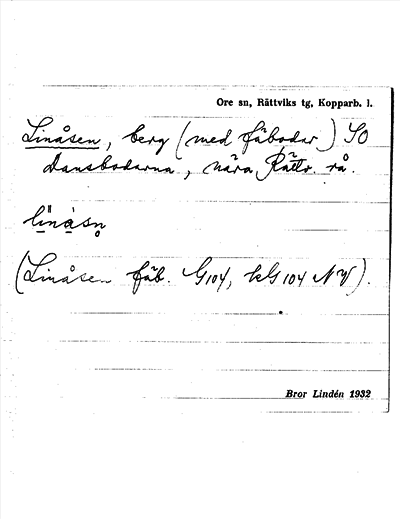 Ore sn, Rättviks tg, Kopparb. l.
Linåsen, berg (med fäbodar) SO
Dansbodarna, nära Rättv. rå.
li̇̀nàsn̥
(Linåsen fäb. G104, kG104 NV).
Bror Lindén 1932